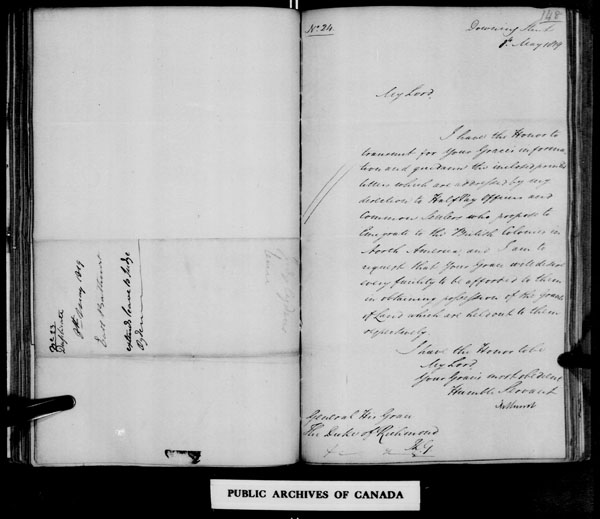 No. 23
Duplicate
8th May 1819
Earl Bathurst
extends leave to Judge
Ogden
148
No. 24.
Downing Street
1st May 1819
My Lord,
I have the Honor to
transmit for Your Grace's informa
tion and guidance the inclosed printed
letters which are addressed by my
direction to Half Pay Officers and
Common Settlers who propose to
Emigrate to the British Colonies in
North America, and I am to
request that Your Grace will desire
every facility to be afforded to them
in obtaining possession of the grants
of Land which are held out to them
respectively.
I have the Honor to be
My Lord
Your Grace's most obedient
Humble Servant
Bathurst
General His Grace
The Duke of Richmond
K.G.
PUBLIC ARCHIVES OF CANADA